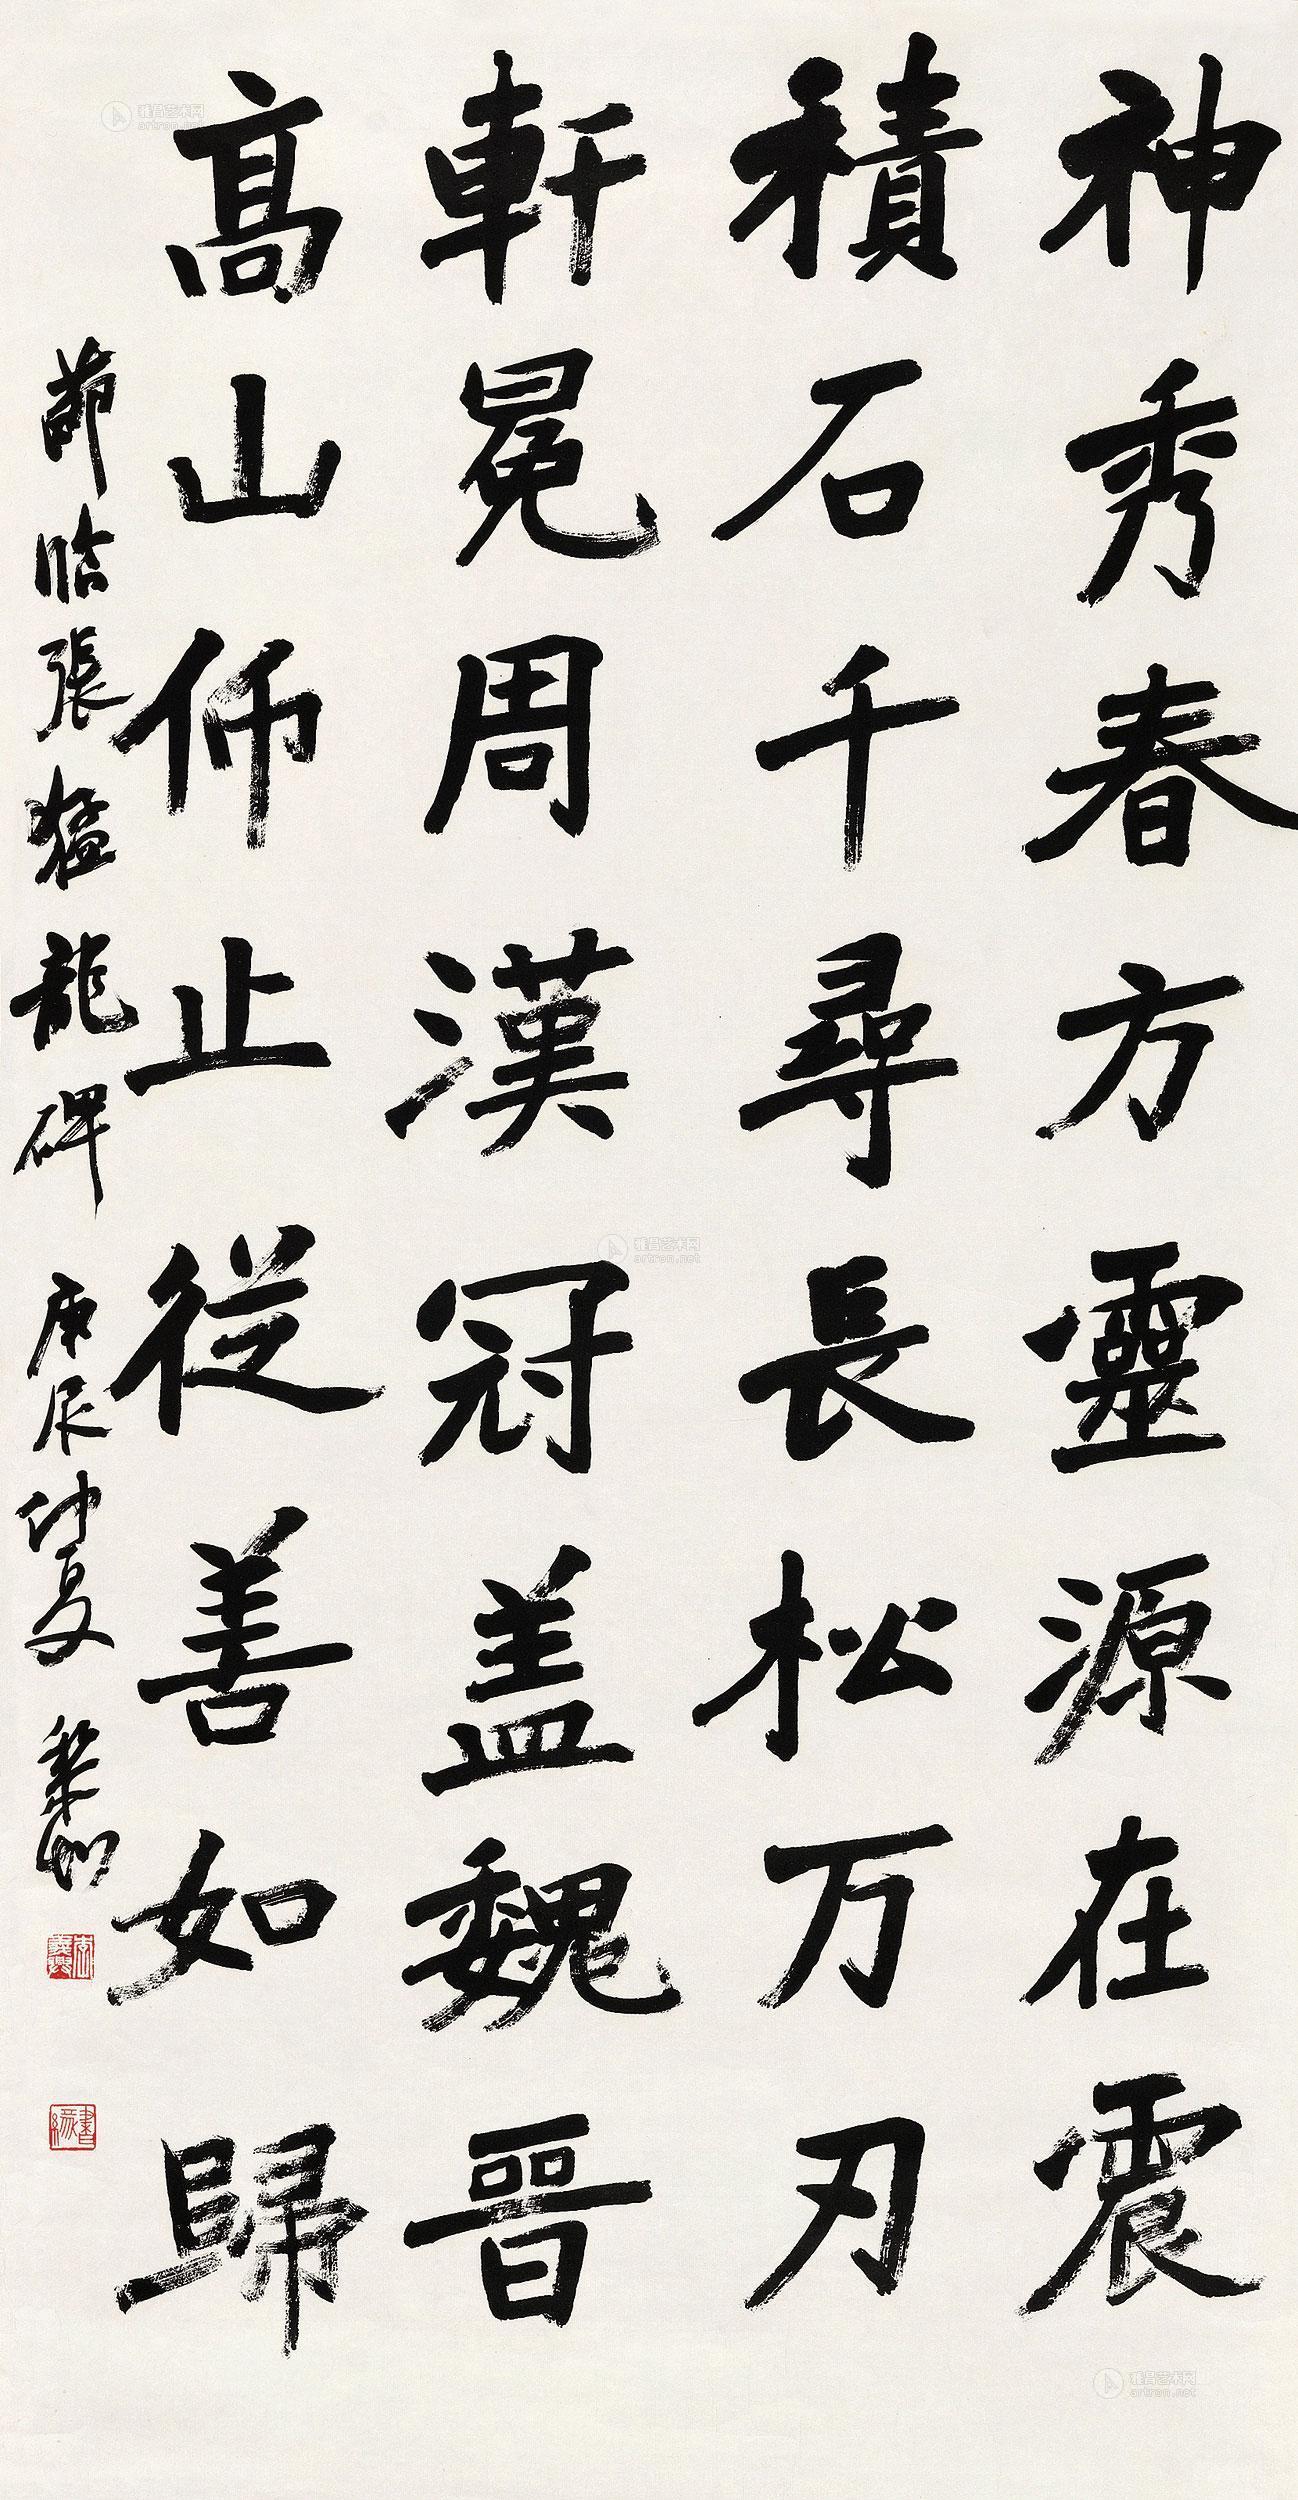 神秀春方靈源在震
積石千尋長松万刃
軒冕周漢冠盖魏晋
髙山仰止從善如歸
節臨張猛龍碑 庚辰仲夏
雅昌艺术网
artron.net
雅昌艺术网
artron.net
雅昌艺术网
artron.net